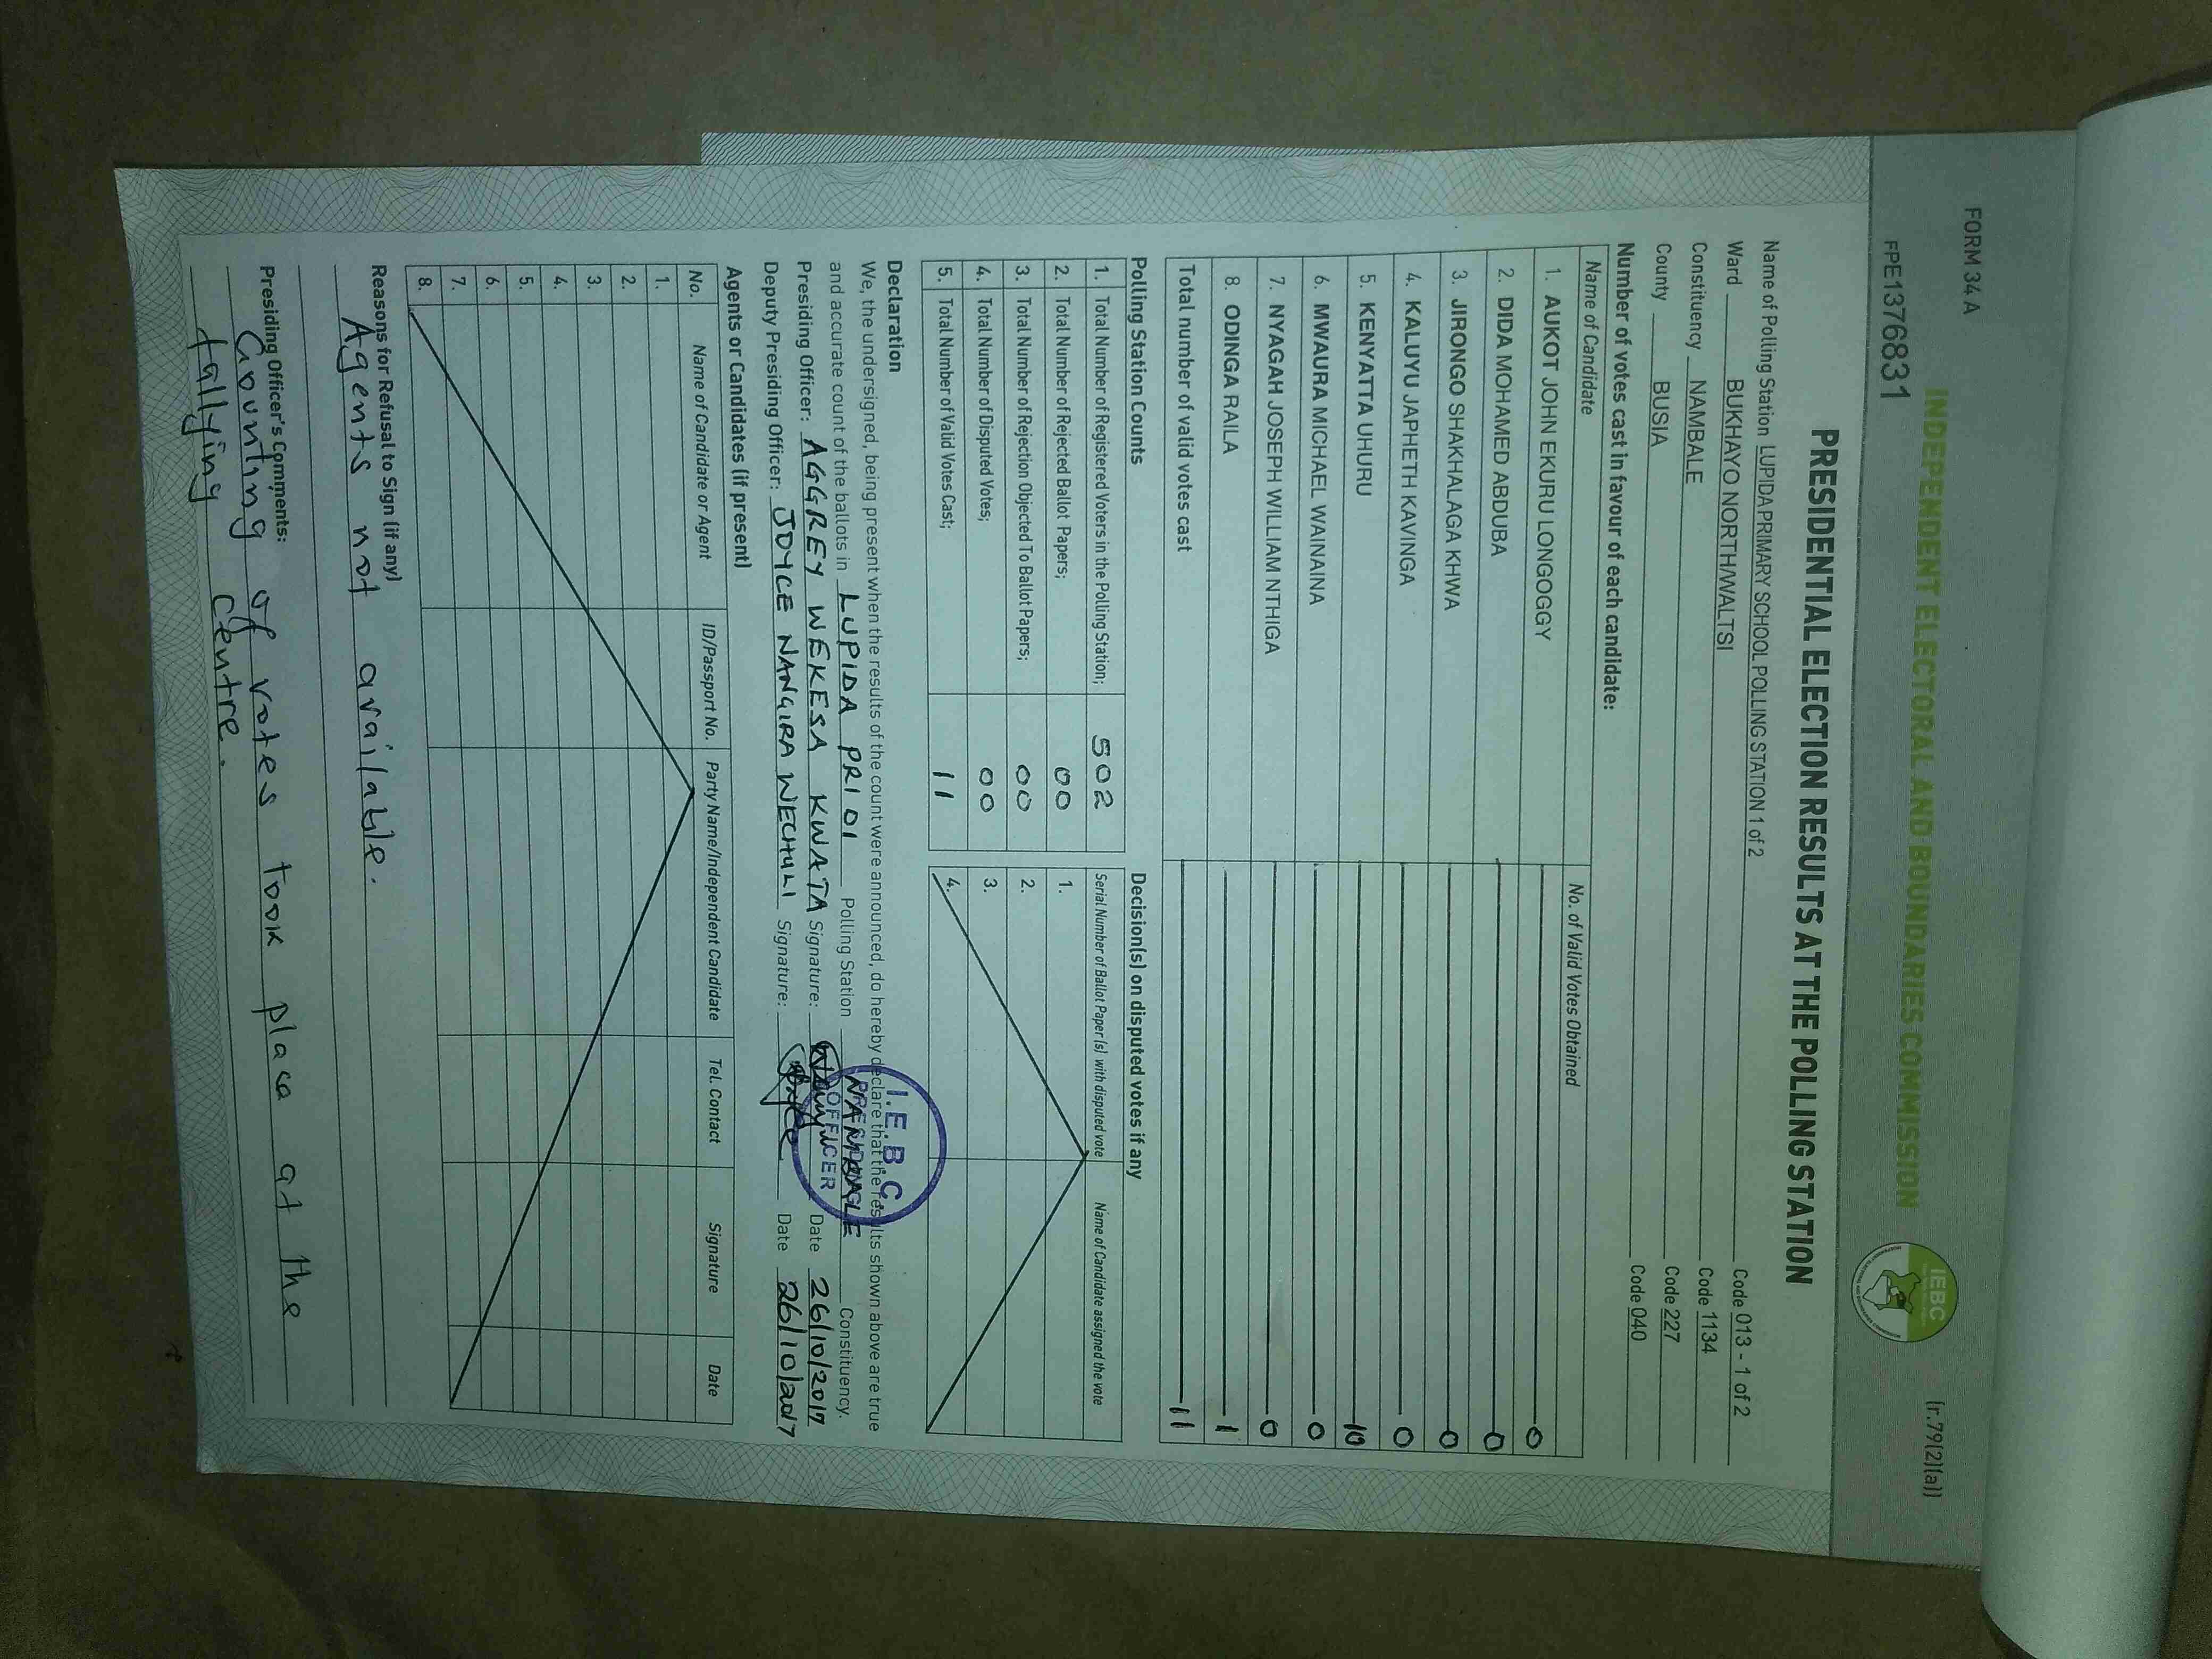 FORM 34 A
INDEPENDENT ELECTORAL AND BOUNDARIES COMMISSION
(r.79(2)(a))
FPE1376831
IEBC
PRESIDENTIAL ELECTION RESULTS AT THE POLLING STATION
Name of Polling Station LUPIDA PRIMARY SCHOOL POLLING STATION 1 of 2 Code 013 - 1 of 2
Ward BUKHAYO NORTH/WALTSI Code 1134
Constituency NAMBALE Code 227
County BUSIA Code 040
Number of votes cast in favour of each candidate:
Name of Candidate No. of Valid Votes Obtained
1. AUKOT JOHN EKURU LONGOGGY 0
2. DIDA MOHAMED ABDUBA 0
3. JIRONGO SHAKHALAGA KHWA 0
4. KALUYU JAPHETH KAVINGA 0
5. KENYATTA UHURU 10
6. MWAURA MICHAEL WAINAINA 0
7. NYAGAH JOSEPH WILLIAM NTHIGA 0
8. ODINGA RAILA 1
Total number of valid votes cast 11
Polling Station Counts
1. Total Number of Registered Voters in the Polling Station; 502
2. Total Number of Rejected Ballot Papers; 00
3. Total Number of Rejection Objected To Ballot Papers; 00
4. Total Number of Disputed Votes; 00
5. Total Number of Valid Votes Cast; 11
Decision(s) on disputed votes if any
Serial Number of Ballot Paper (s) with disputed vote Name of Candidate assigned the vote
1.
2.
3.
4.
Declaration
We, the undersigned, being present when the results of the count were announced, do hereby declare that the results shown above are true
and accurate count of the ballots in LUPIDA PRI 01 Polling Station NAMBALE Constituency.
Presiding Officer: AGGREY WEKESA KWATA Signature: Date 26/10/2017
Deputy Presiding Officer: JOYCE NANGIRA WECHULI Signature: Date 26/10/2017
I.E.B.C.
PRESIDING
OFFICER
Agents or Candidates (if present)
No. Name of Candidate or Agent ID/Passport No. Party Name/Independent Candidate Tel. Contact Signature Date
1.
2.
3.
4.
5.
6.
7.
8.
Reasons for Refusal to Sign (if any)
Agents not available.
Presiding Officer's Comments:
Counting of votes took place at the
tallying centre.